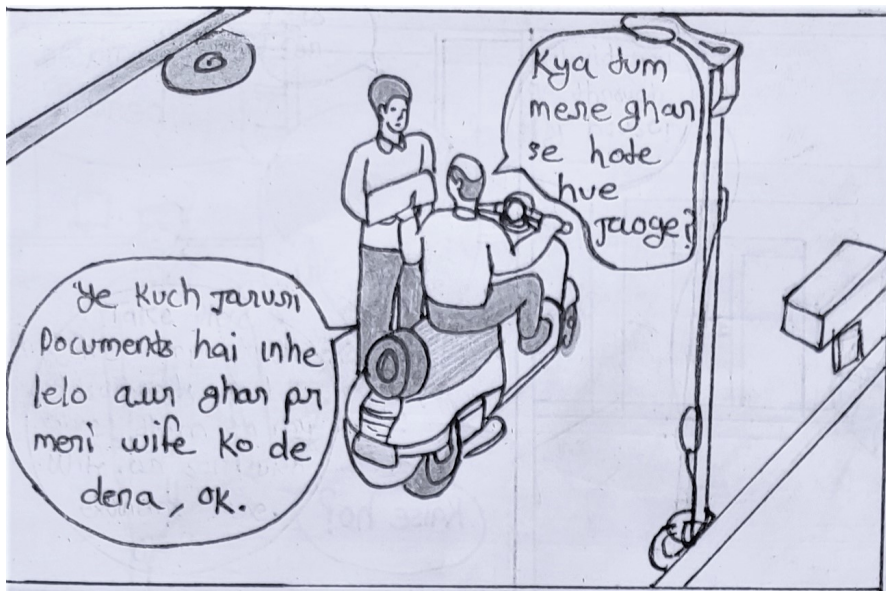 Kya tum
mere ghar
se hote
hue
Jaoge?
Ye Kuch Jaruri
Documents hai inhe
lelo aur ghar pr
meri wife Ko de
dena, OK.